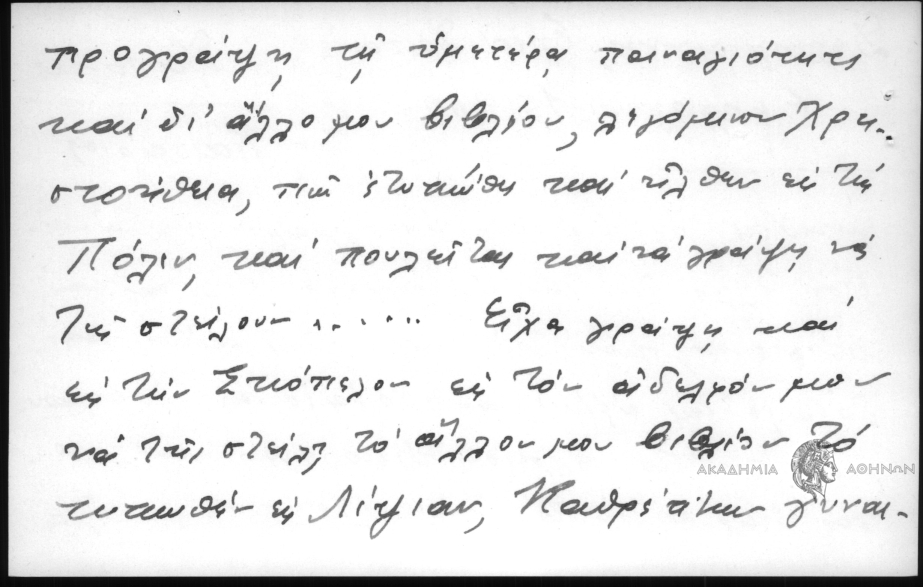 προγράψῃ τῇ ὑμετέρᾳ παναγιότητι
καί δι' ἄλλο μου βιβλίον, λεγόμενον Χρη-
στοήθεια, ποῦ ἐτυπώθη καί ἦλθεν εἰς τήν
Πόλιν, καί πουλεῖται καί νά γράψῃ νά
τῆς στείλουν ...... Εἶχα γράψῃ καί
εἰς τήν Σκόπελον εἰς τόν ἀδελφόν μου
νά τῆς στείλῃ τό ἄλλον μου βιβλίον τό
τυπωθέν εἰς Λειψίαν, Καθρέπτην γυναι-
ΑΚΑΔΗΜΙΑ ΑΘΗΝΩΝ